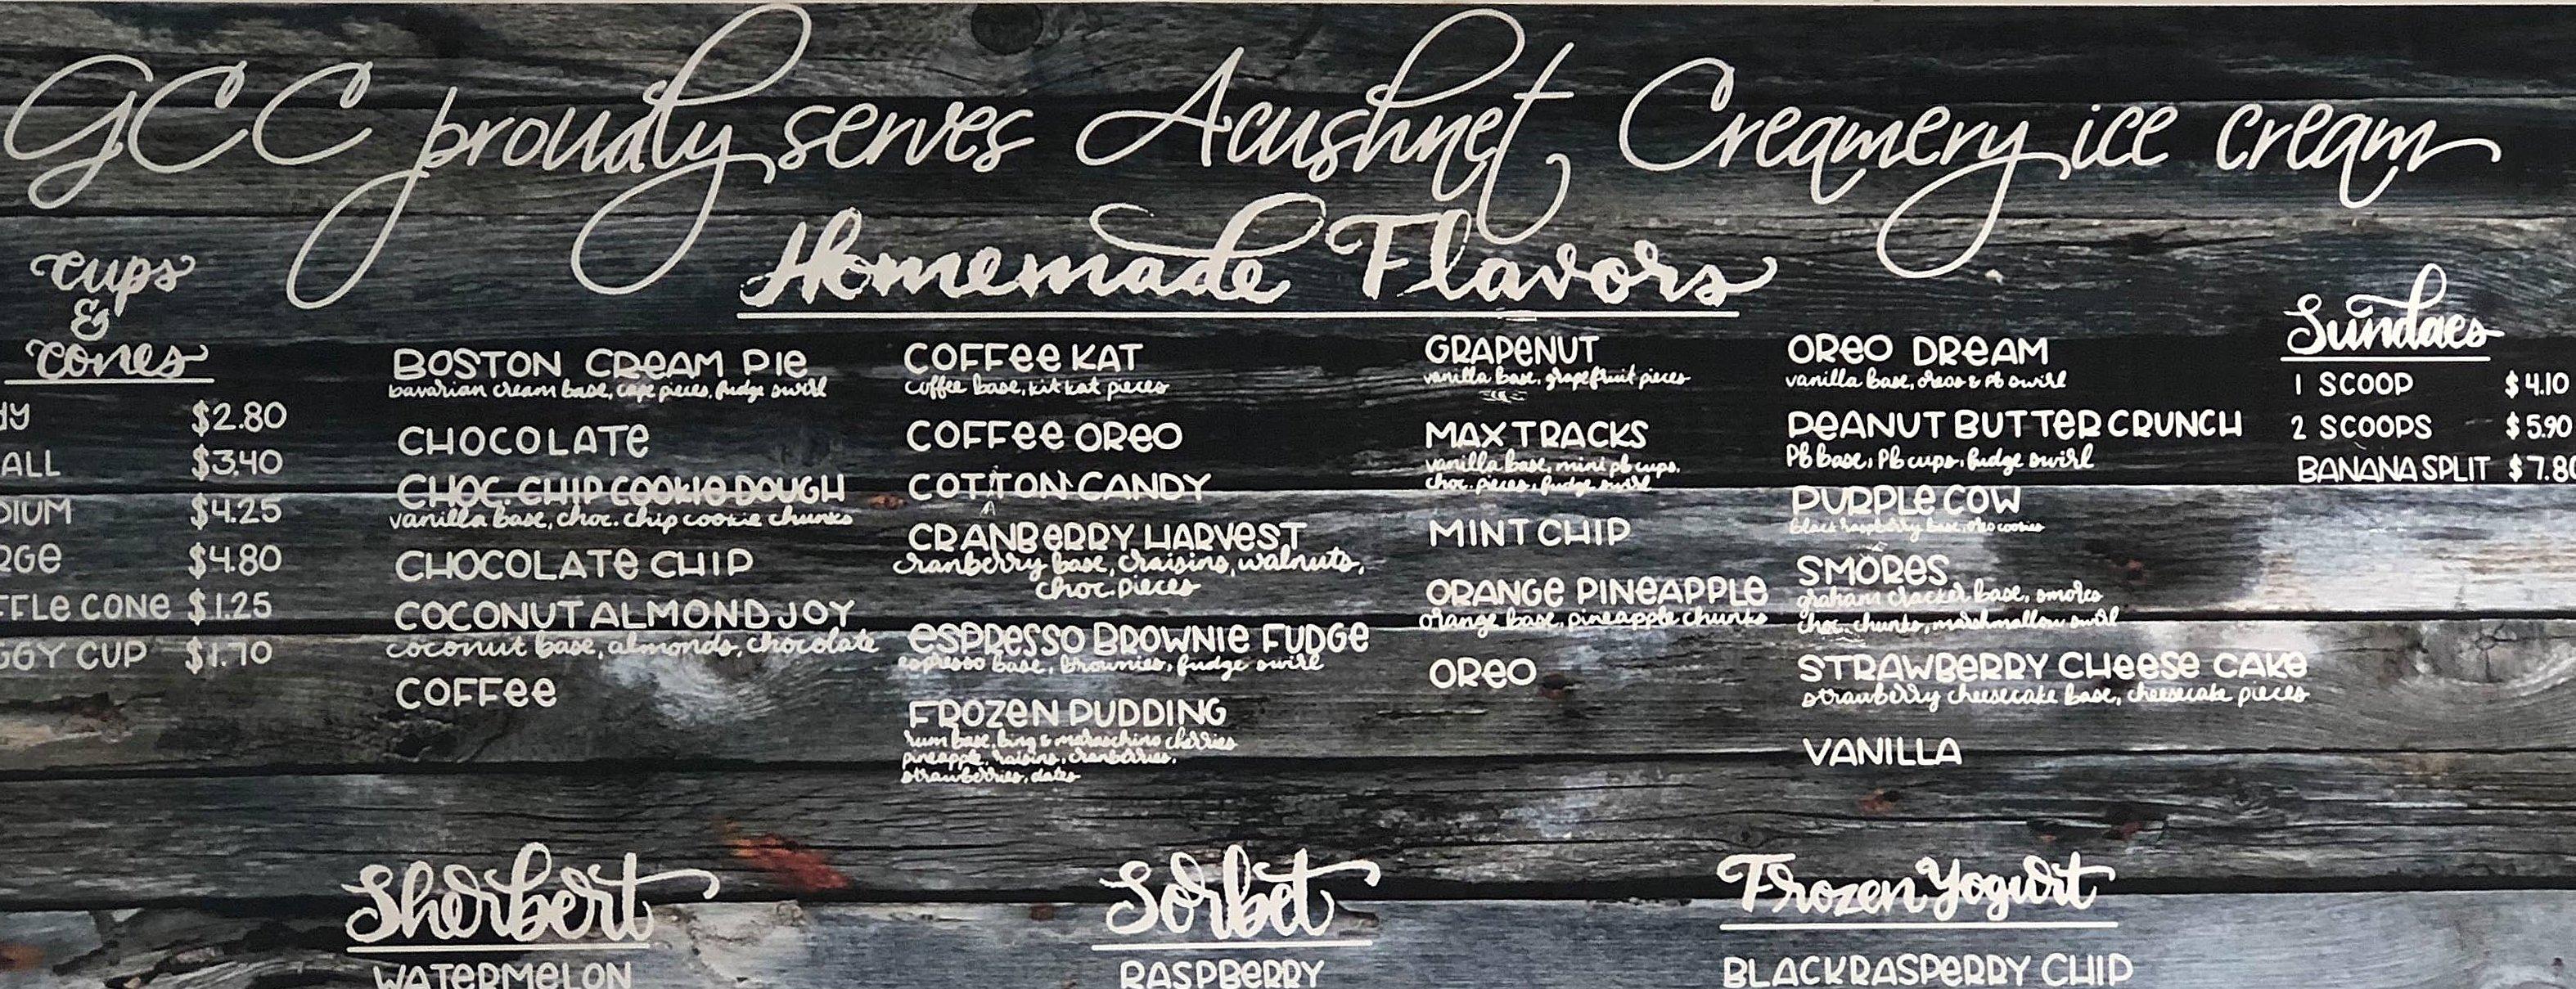 GCC proudly serves Acushnet Creamery ice cream
Homemade Flavors
Cups
&
Cones
$2.80
ALL $3.40
DIUM $4.25
RGe $4.80
FFLe CONe $1.25
GGY CUP $1.70
BOSTON CREAM PIe
bavarian cream base, cake pieces, fudge swirl
CHOCOLATe
CHOC. CHIP COOKIe DOUGH
vanilla base, choc. chip cookie chunks
CHOCOLATe CHIP
COCONUT ALMOND JOY
coconut base, almonds, chocolate
COFFee
COFFee KAT
coffee base, kit kat pieces
COFFee OReO
COTTON CANDY
CRANBeRRY HARVeST
cranberry base, craisins, walnuts,
choc. pieces
eSPReSSO BROWNIe FUDGe
espresso base, brownies, fudge swirl
FROZeN PUDDING
rum base, bing & maraschino cherries
pineapple, raisins, cranberries,
strawberries, dates
GRAPeNUT
vanilla base, grapefruit pieces
MAX TRACKS
vanilla base, mint pb cups,
choc. pieces, fudge swirl
MINT CHIP
ORANGe PINeAPPLe
orange base, pineapple chunks
OReO
OReO DReAM
vanilla base, oreos & pb swirl
PeANUT BUTTeR CRUNCH
Pb base, Pb cups, fudge swirl
PURPLe COW
black raspberry base, oreo cookies
SMOReS
graham cracker base, smores
choc. chunks, marshmallow swirl
STRAWBeRRY CHeeSe CAKe
strawberry cheesecake base, cheesecake pieces
VANILLA
Sundaes
1 SCOOP $4.10
2 SCOOPS $5.90
BANANA SPLIT $7.80
Sherbert
WATeRMeLON
Sorbet
RASPBeRRY
Frozen Yogurt
BLACK RASPBeRRY CHIP